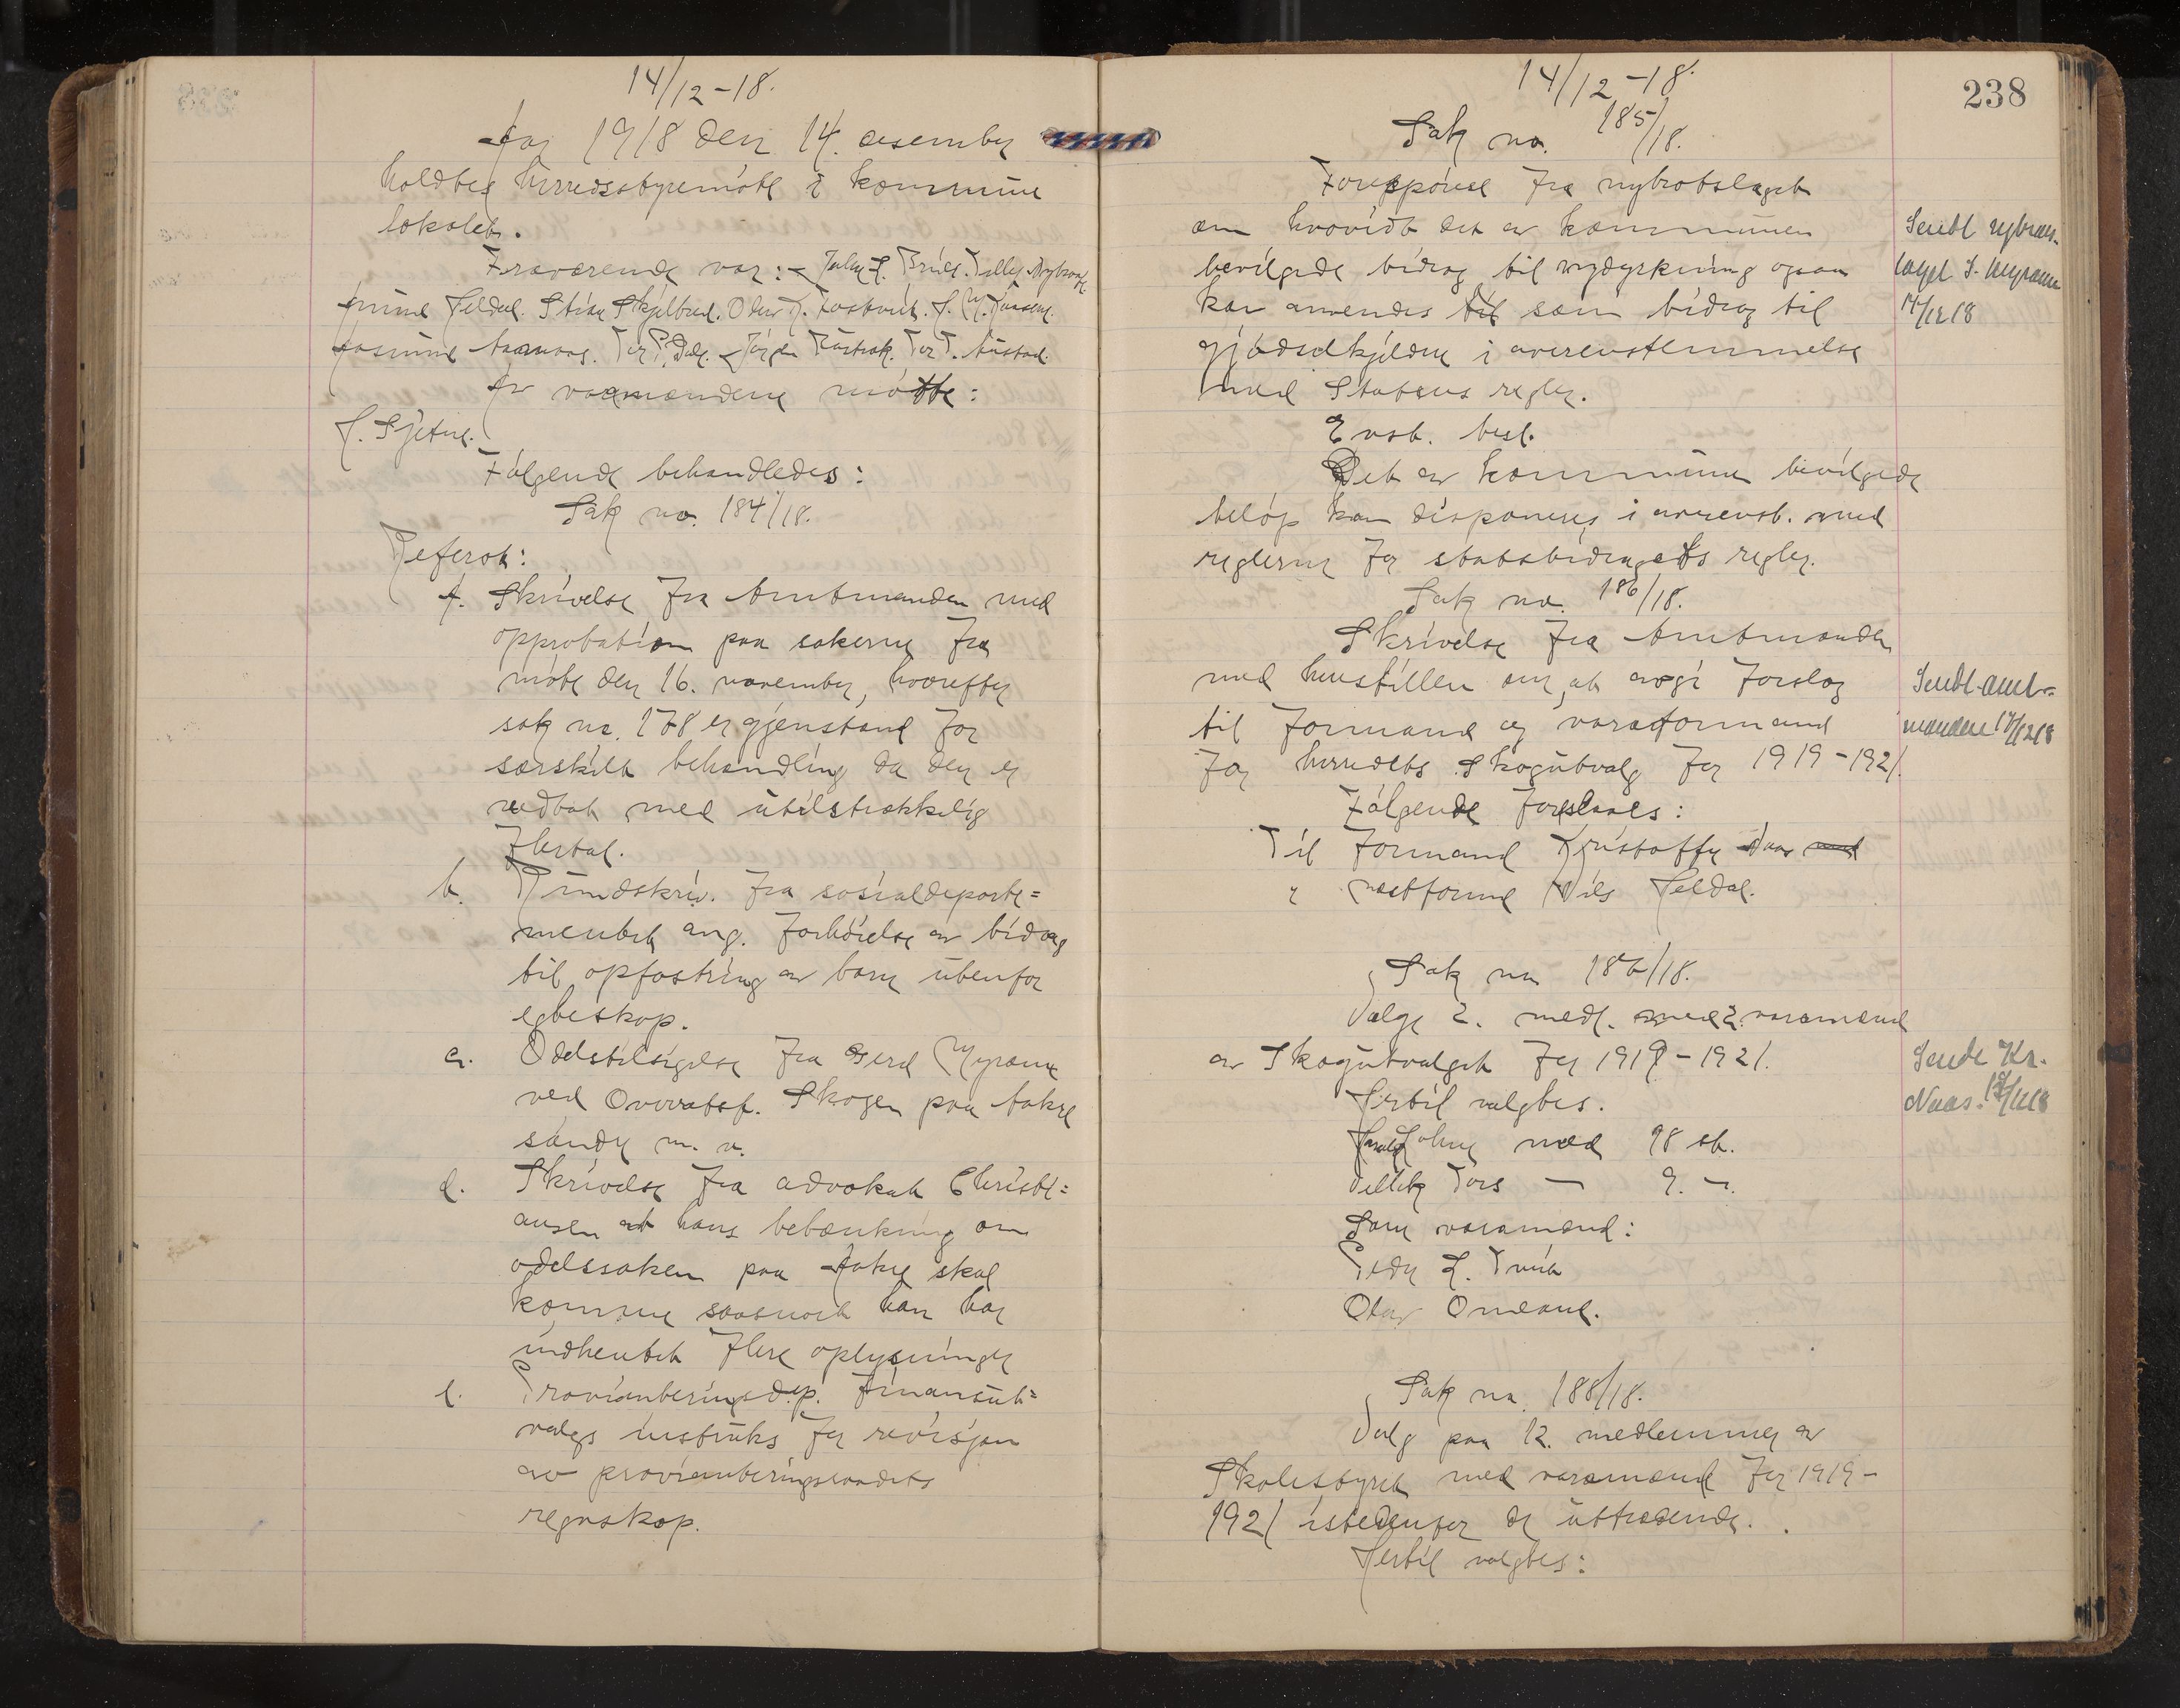 14/12-18.
Aar 1918 den 14. desember
holdtes herredsstyremöte i kommune
lokalet.
Fraværende var:
Aasmund
Av varamændene mötte:
Fölgende behandledes:
Sak no. 184/18.
Referat:
a. Skrivelse fra Amtmanden med
approbation paa sakerne fra
möte den 16. november, hvorefter
sak no. 178 er gjenstand for
særskilt behandling da den er
vedtat med utilstrækkelig
flertal.
b. Rundskriv. fra sosialdeparte=
mentet ang. forhöielse av bidrag
til opfostring av barn utenfor
egteskap.
c. Odelstilsigelse fra Gerd Myrann
ved Overretssf. Skogen paa Aakre
söndre m. v.
d. Skrivelse fra advokat Christi=
ansen at hans betænkning om
odelssaken paa Aakre skal
komme saasnart han har
indhentet flere oplysninger
e. Provianteringsdep. finansut=
valgs instruks for revisjon
av provianteringsraadets
regnskap.
14/12-18.
238
Sak no. 185/18.
Forespörsel fra nybrotslaget
om hvorvidt det av kommunen
bevilgede bidrag til nydyrkning ogsaa
kan anvendes til som bidrag til
gjödselkjeldere i overenstemmelse
med Statens regler.
Enst. besl.
Det av kommune bevilgede
belöp kan disponeres i overenst. med
reglerne for statsbidragets regler.
Sendt nybrots-
laget S. Myrann
14/12 18
Sak no. 186/18.
Skrivelse fra Amtmanden
med henstillen om, at avgi forslag
til formand og varaformand
for herredets Skogutvalg for 1919-1921.
Fölgende foreslaaes:
Til formand Kristoffer Naas med
" næstformd Nils Heldal.
Sendt amt-
manden 17/12 18
Sak no 187/18.
Valg 2. medl. med 2. varamænd
av Skogutvalget for 1919-1921.
Hertil valgtes.
med 18 st.
Vetle Tors — 9. —.
Som varamænd:
Peder
Olav Omland.
Sendt Kr.
Naas. 17/12 18
Sak no. 188/18.
Valg paa 12. medlemmer av
Skolestyret med varamænd for 1919-
1921 istedenfor de uttrædende.
Hertil valgtes: